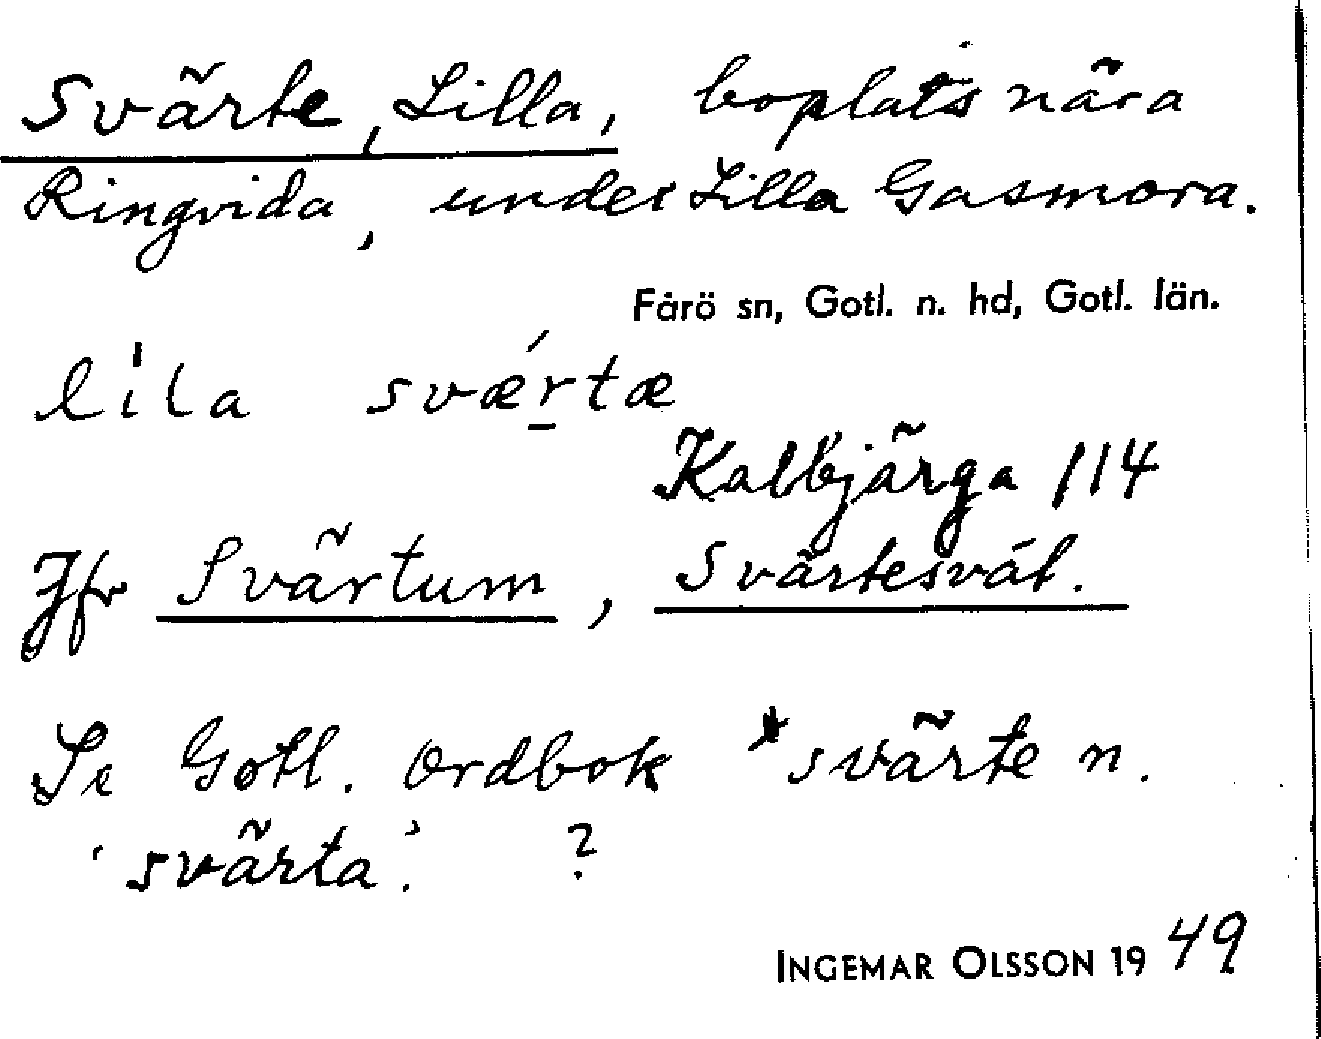 Svärte, Lilla, boplats nära
Ringvida, under Lilla Gasmora.
Fårö sn, Gotl. n. hd, Gotl. län.
li̍la svǽr̲tæ
Kalbjärga 114
Jfr Svärtum, Svärtesvät.
Se Gotl. Ordbok *svärte n.
'svärta.' ?
INGEMAR OLSSON 1949